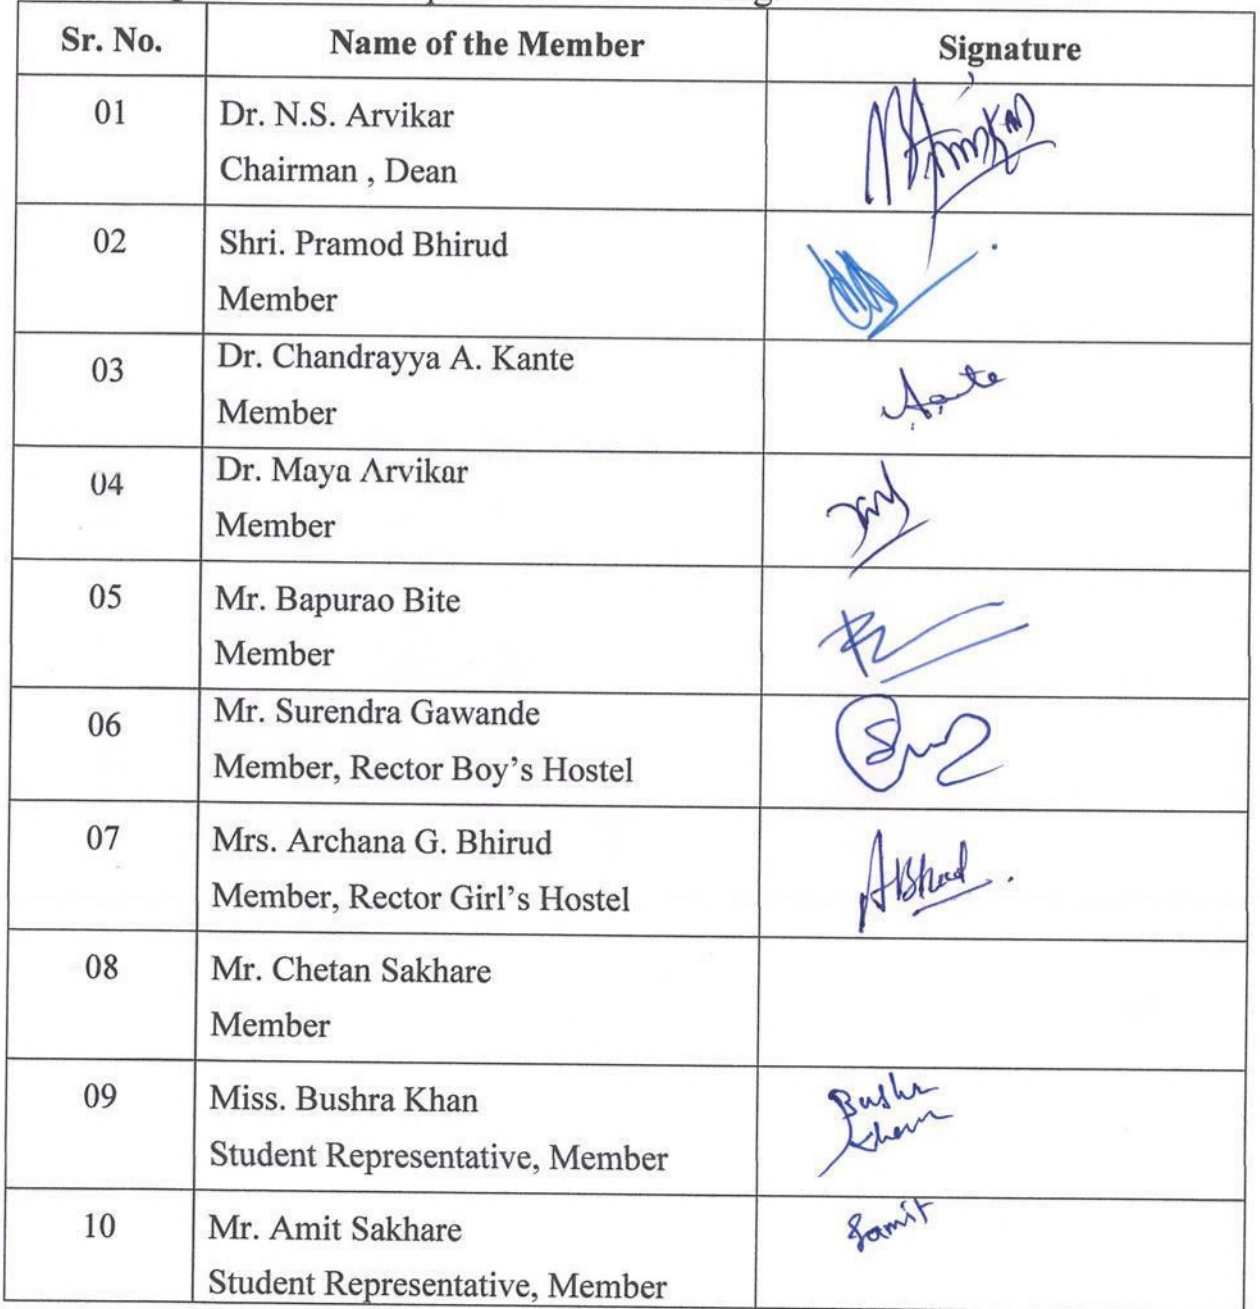 Sr. No. Name of the Member Signature
01 Dr. N.S. Arvikar
Chairman , Dean
02 Shri. Pramod Bhirud
Member
03 Dr. Chandrayya A. Kante
Member
04 Dr. Maya Arvikar
Member
05 Mr. Bapurao Bite
Member
06 Mr. Surendra Gawande
Member, Rector Boy's Hostel
07 Mrs. Archana G. Bhirud
Member, Rector Girl's Hostel
08 Mr. Chetan Sakhare
Member
09 Miss. Bushra Khan
Student Representative, Member
10 Mr. Amit Sakhare
Student Representative, Member